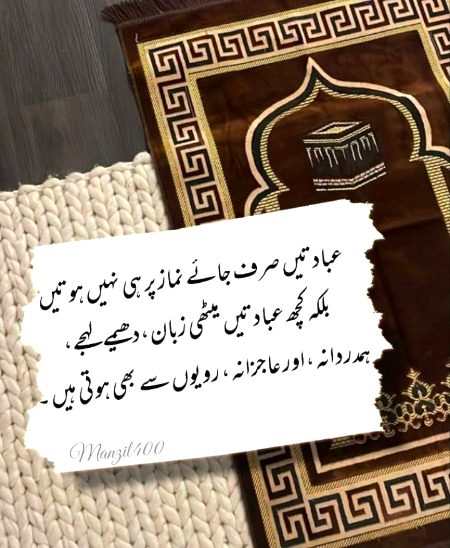 عبادتیں صرف جائے نماز پر ہی نہیں ہوتیں
بلکہ کچھ عبادتیں میٹھی زبان ، دھیمے لہجے ،
ہمدردانہ ، اور عاجزانہ ، رویوں سے بھی ہوتی ہیں ۔
Manzil400